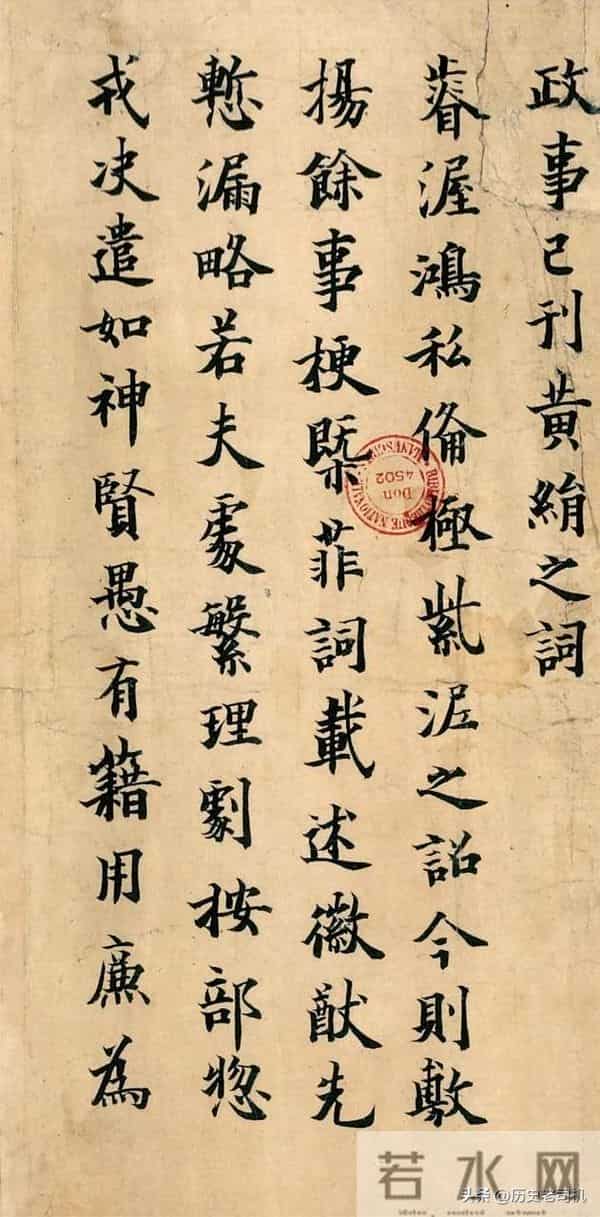 政事已刊黃絹之詞
睿渥鴻私俻極紫泥之詔今則敷
揚餘事梗槩菲詞載述徽猷先
慙漏略若夫處繁理劇按部惣
戎决遣如神賢愚有籍用廉為
Don
4502
若水网
头条 @历史老司机